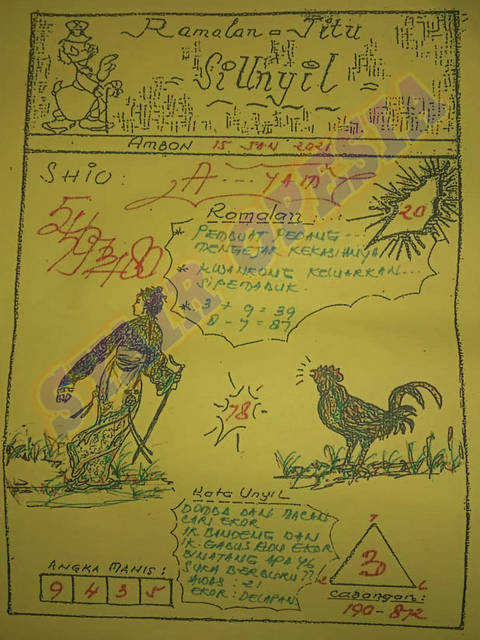 Ramalan = Titu
SiUnyil
AMBON 15 JAN 2021
SHIO :
A --- YAM
20
Romalan : ...:
* PEMBUAT PEDANG ---
MENGEJAR KEKASIHNYA
* KWANKONG KELUARKAN...
SIPEMABUK.
* 3 + 9 = 39
8 - 7 = 87
78
Kata Unyil
DOMBA DAN MACAN
CARI EKOR
IK BANDENG DAN
IK GABUS ADU EKOR
BINATANG APA YG
SUKA BERBURU ??!
AWAS : 2!
EKOR : DELAPAN
ANGKA MANIS :
9 4 3 5
7
3
6
CADANGAN :
190 - 872